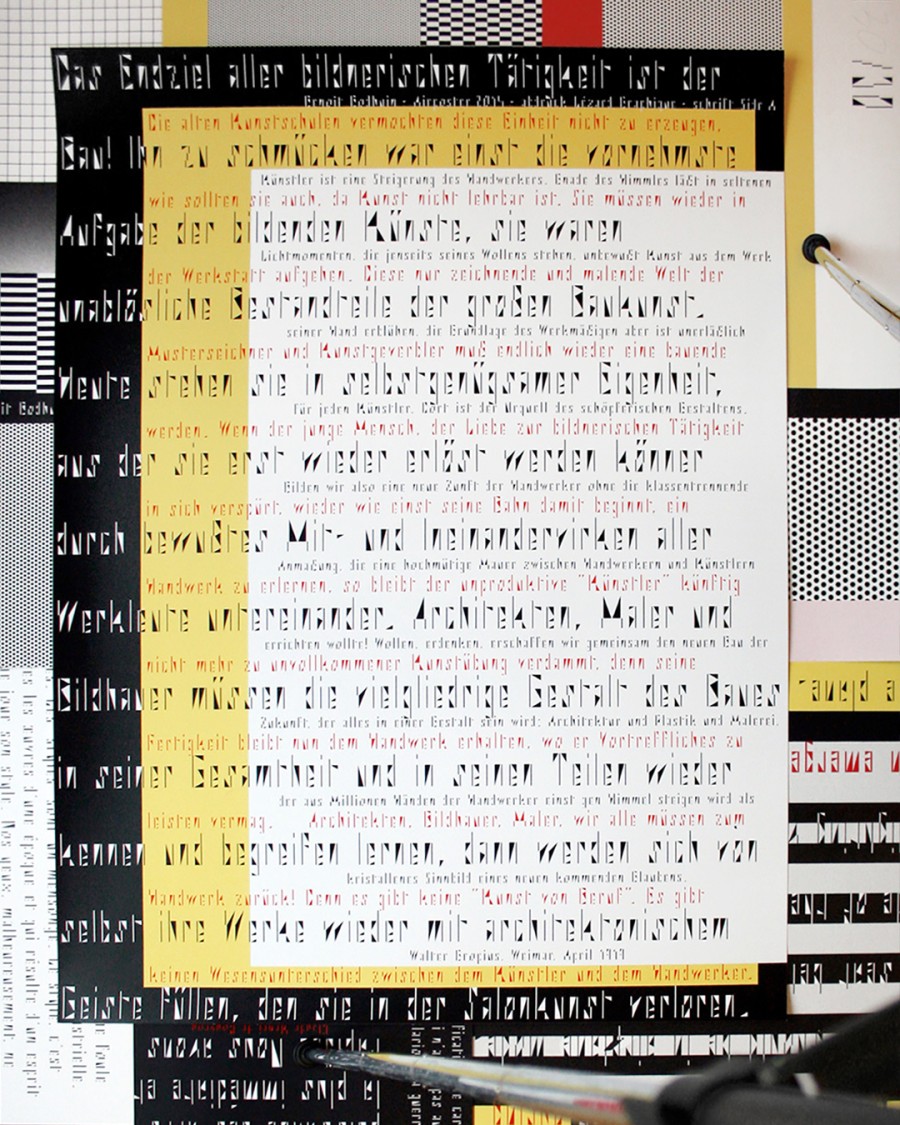 Das Endziel aller bildnerischen Tätigkeit ist der
Die alten Kunstschulen vermochten diese Einheit nicht zu erzeugen,
Bau! Ihn zu schmücken war einst die vornehmste
Künstler ist eine Steigerung des Handwerkers. Gnade des Himmels läßt in seltenen
wie sollten sie auch, da Kunst nicht lehrbar ist. Sie müssen wieder in
Aufgabe der bildenden Künste, sie waren
Lichtmomenten, die jenseits seines Wollens stehen, unbewußt Kunst aus dem Werk
der Werkstatt aufgehen. Diese nur zeichnende und malende Welt der
unablösliche Bestandteile der großen Baukunst.
seiner Hand erblühen, die Grundlage des Werkmäßigen aber ist unerläßlich
Musterzeichner und Kunstgewerbler muß endlich wieder eine bauende
Heute stehen sie in selbstgenügsamer Eigenheit,
für jeden Künstler. Dort ist der Urquell des schöpferischen Gestaltens.
werden. Wenn der junge Mensch, der Liebe zur bildnerischen Tätigkeit
aus der sie erst wieder erlöst werden können
Bilden wir also eine neue Zunft der Handwerker ohne die klassentrennende
in sich verspürt, wieder wie einst seine Bahn damit beginnt, ein
durch bewußtes Mit- und Ineinanderwirken aller
Anmaßung, die eine hochmütige Mauer zwischen Handwerkern und Künstlern
Handwerk zu erlernen, so bleibt der unproduktive "Künstler" künftig
Werkleute untereinander. Architekten, Maler und
errichten wollte! Wollen, erdenken, erschaffen wir gemeinsam den neuen Bau der
nicht mehr zu unvollkommener Kunstübung verdammt, denn seine
Bildhauer müssen die vielgliedrige Gestalt des Baues
Zukunft, der alles in einer Gestalt sein wird: Architektur und Plastik und Malerei,
Fertigkeit bleibt nun dem Handwerk erhalten, wo er Vortreffliches zu
in seiner Gesamtheit und in seinen Teilen wieder
der aus Millionen Händen der Handwerker einst gen Himmel steigen wird als
leisten vermag. Architekten, Bildhauer, Maler, wir alle müssen zum
kennen und begreifen lernen, dann werden sich von
kristallenes Sinnbild eines neuen kommenden Glaubens.
Handwerk zurück! Denn es gibt keine "Kunst von Beruf". Es gibt
selbst ihre Werke wieder mit architektonischem
Walter Gropius, Weimar, April 1919
keinen Wesensunterschied zwischen dem Künstler und dem Handwerker.
Geiste füllen, den sie in der Salonkunst verloren.